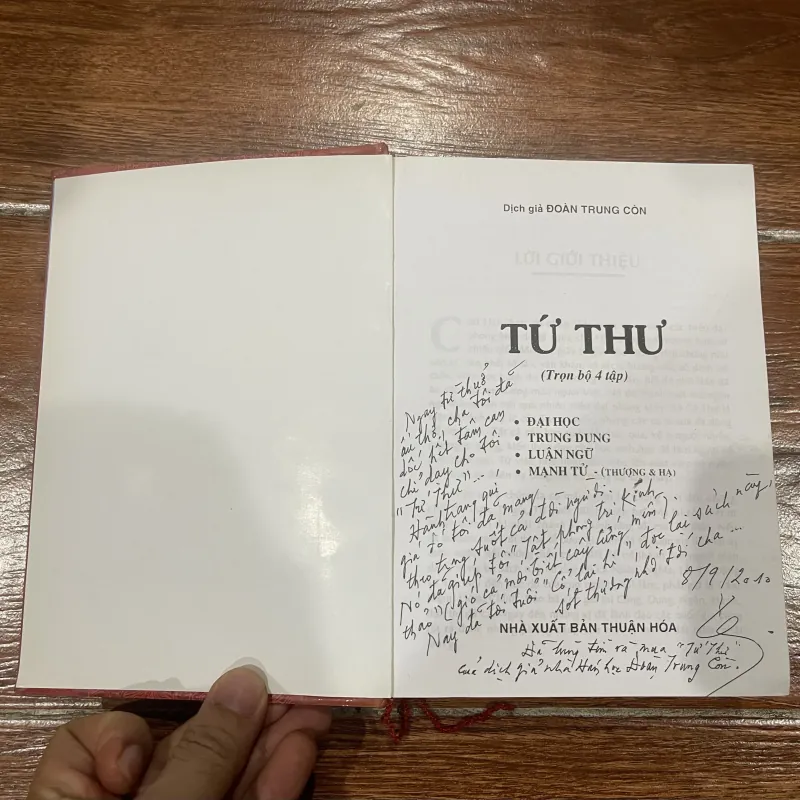 Dịch giả ĐOÀN TRUNG CÒN
LỜI GIỚI THIỆU
TỨ THƯ
(Trọn bộ 4 tập)
• ĐẠI HỌC
• TRUNG DUNG
• LUẬN NGỮ
• MẠNH TỬ - (THƯỢNG & HẠ)
Ngay từ thuở
ấu thơ, cha tôi đã
dốc hết tâm can
chỉ dạy cho tôi
"Tứ Thư"...,
Hành trang quí
giá đó tôi đã mang
theo trong suốt cả đời người.
Nó đã giúp tôi "Tật phong tri kính
thảo" (gió cả mới biết cây cứng mềm).
Nay đã tới tuổi "Cổ lai hi" đọc lại sách này,
sót thương nhớ tới cha...
8/9/2010
NHÀ XUẤT BẢN THUẬN HÓA
Đã lùng tìm và mua "Tứ Thư"
của dịch giả nhà Hán học Đoàn Trung Còn.